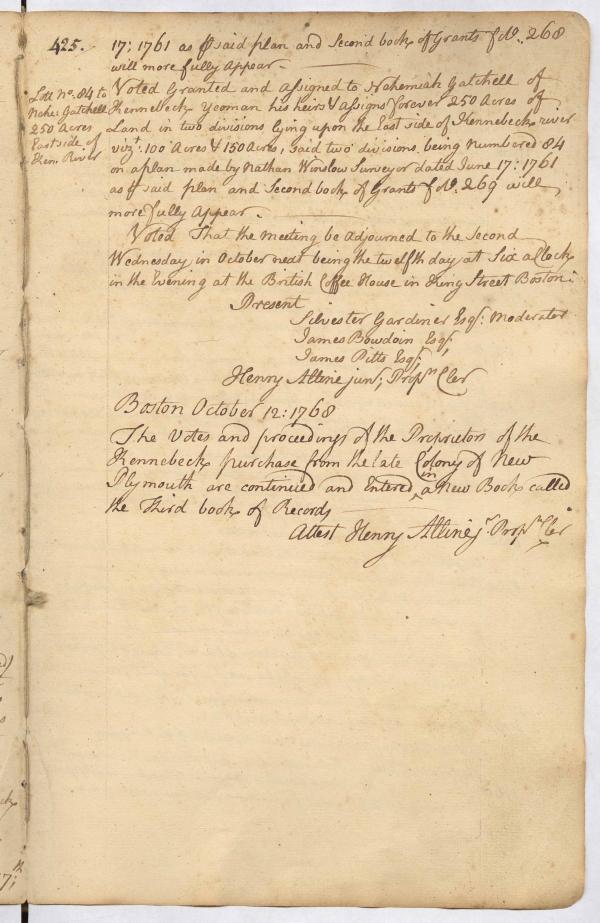 425.
17: 1761 as ⅌ said plan and Second book of Grants f No. 268
will more fully Appear.
Lott No. 84 to
Nehe. Gatchell
250 Acres
East side of
Ken. River
Voted Granted and Assigned to Nehemiah Gatchell of
Kennebeck yeoman his heirs & assigns forever 250 Acres of
Land in two divisions lying upon the East side of Kennebeck river
vizt. 100 Acres & 150 Acres, Said two divisions being Numbered 84
on a plan made by Nathan Winslow Surveyor dated June 17: 1761
as ⅌ said plan and Second book of Grants f No. 269 will
more fully Appear.
Voted That the meeting be adjourned to the Second
Wednesday in October next being the twelfth day at Six a Clock
in the Evening at the British Coffee House in King Street Boston.
Present
Silvester Gardiner Esqr. Moderator
James Bowdoin Esqr.
James Pitts Esqr.
Henry Alline junr. Proprs. Cler
Boston October 12: 1768
The Votes and proceedings of the Proprietors of the
Kennebeck purchase from the late Colony of New
Plymouth are continued and Entered in a New Book called
the Third book of Records
Attest Henry Alline jr. Proprs. Cler